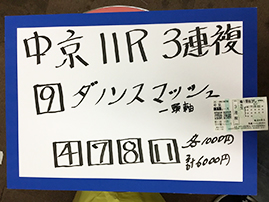 中京 11R 3連複
9 ダノンスマッシュ
一頭軸
4 7 8 11 各1000円
計6000円